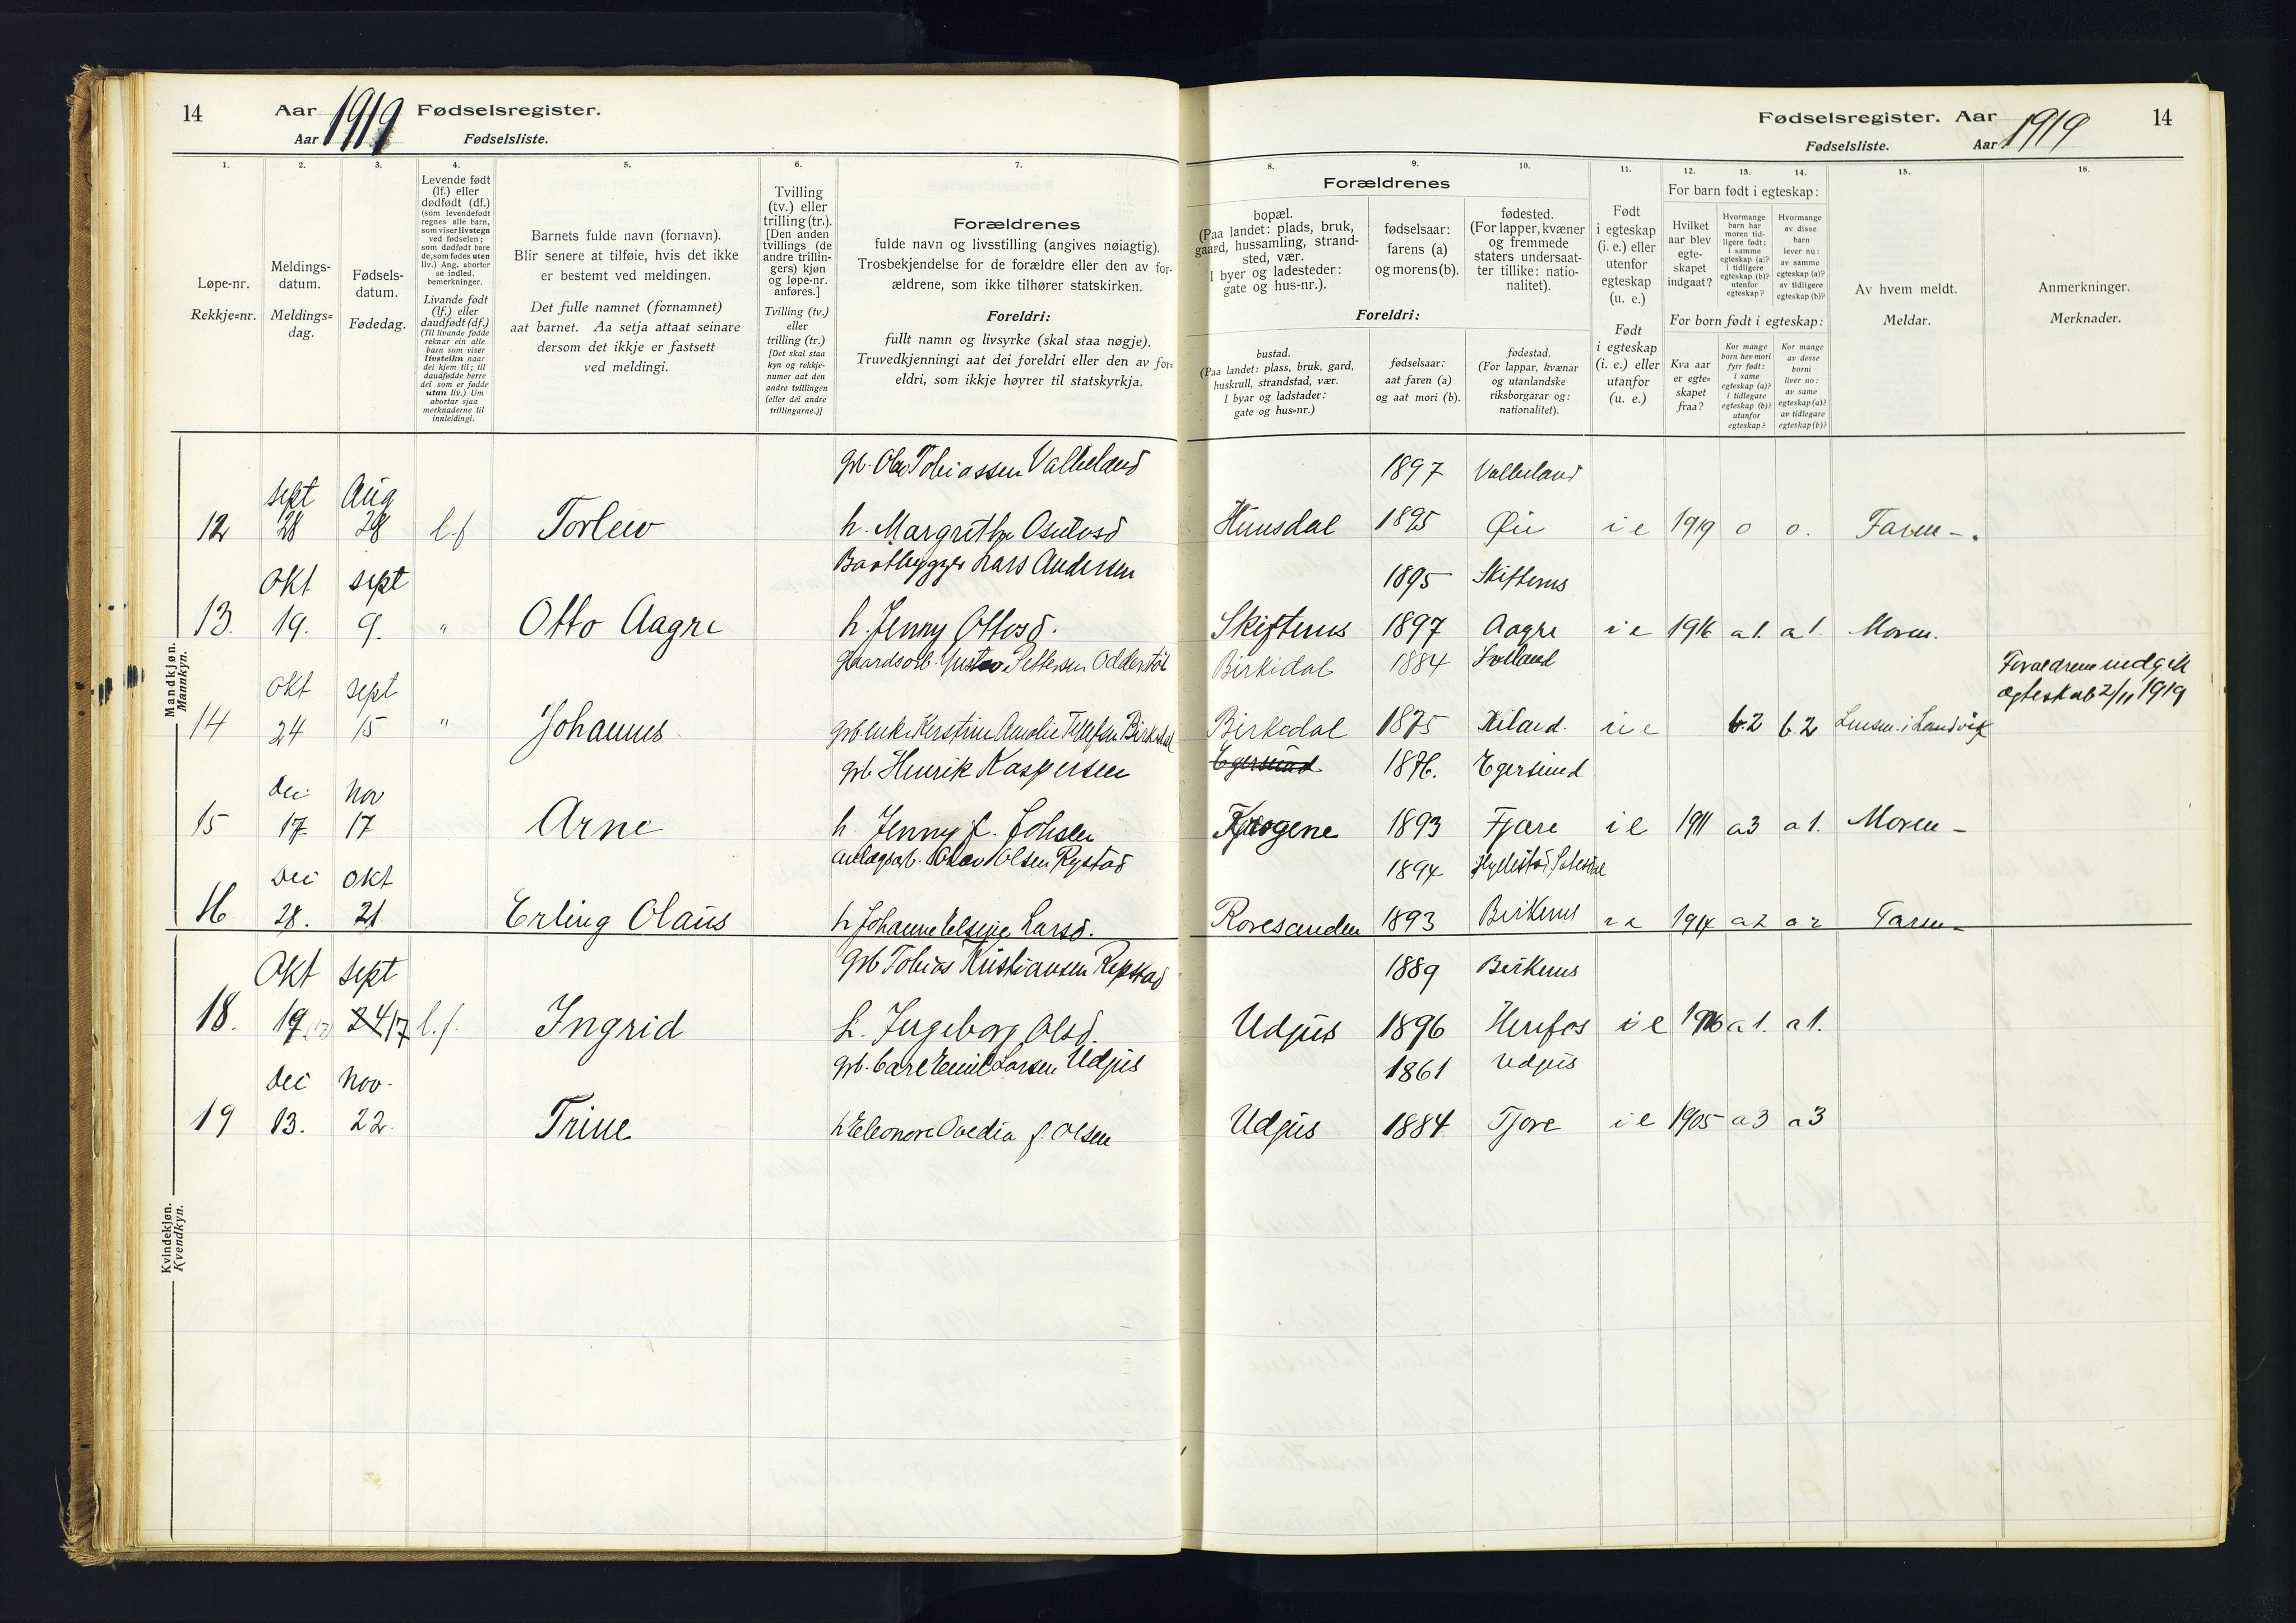 14 Aar 1919 Fødselsregister.
Aar Fødselsliste.
Fødselsregister. Aar 1919 14
Fødselsliste. Aar
1. 2. 3. 4. 5. 6. 7.
Løpe-nr.
Rekkje=nr.
Meldings-
datum.
Meldings=
dag.
Fødsels-
datum.
Fødedag.
Levende født
(lf.) eller
dødfødt (df.)
(som levendefødt
regnes alle barn,
som viser livstegn
ved fødselen;
som dødfødt bare
de, som fødes uten
liv.) Ang. aborter
se indled.
bemerkninger.
Livande født
(lf.) eller
daudfødt (df.)
(Til livande fødde
reknar ein alle
barn som viser
livsteikn naar
dei kjem til; til
daudfødde berre
dei som er fødde
utan liv.) Um
abortar sjaa
merknaderne til
innleidingi.
Barnets fulde navn (fornavn).
Blir senere at tilføie, hvis det ikke
er bestemt ved meldingen.
Det fulle namnet (fornamnet)
aat barnet. Aa setja attaat seinare
dersom det ikkje er fastsett
ved meldingi.
Tvilling
(tv.) eller
trilling (tr.).
[Den anden
tvillings (de
andre trillin-
gers) kjøn
og løpe-nr.
anføres.]
Tvilling (tv.)
eller
trilling (tr.)
[Det skal staa
kyn og rekkje-
numer aat den
andre tvillingen
(eller dei andre
trillingarne.)]
Forældrenes
fulde navn og livsstilling (angives nøiagtig).
Trosbekjendelse for de forældre eller den av for-
ældrene, som ikke tilhører statskirken.
Foreldri:
fullt namn og livsyrke (skal staa nøgje).
Truvedkjenningi aat dei foreldri eller den av for=
eldri, som ikkje høyrer til statskyrkja.
8. 9. 10. 11. 12. 13. 14. 15. 16.
Forældrenes
bopæl.
(Paa landet: plads, bruk,
gaard, hussamling, strand-
sted, vær.
I byer og ladesteder:
gate og hus-nr.).
fødselsaar:
farens (a)
og morens (b).
fødested.
(For lapper, kvæner
og fremmede
staters undersaat-
ter tillike: natio-
nalitet).
Foreldri:
bustad.
(Paa landet: plass, bruk, gard,
huskrull, strandstad, vær.
I byar og ladstader:
gate og hus=nr.)
fødselsaar:
aat faren (a)
og aat mori (b).
fødestad.
(For lappar, kvænar
og utanlandske
riksborgarar og:
nationalitet).
Født
i egteskap
(i. e.) eller
utenfor
egteskap
(u. e.)
Født
i egteskap
(i. e.) eller
utanfor
(u. e.)
For barn født i egteskap:
Hvilket
aar blev
egte-
skapet
indgaat?
Hvormange
barn har
moren tid-
ligere født:
i samme
egteskap (a)?
i tidligere
egteskap (b)?
utenfor
egteskap?
Hvormange
av disse
barn
lever nu:
av samme
egteskap (a)?
av tidligere
egteskap (b)?
For born født i egteskap:
Kva aar
er egte=
skapet
fraa?
Kor mange
born hev mori
fyrr født:
i same
egteskap (a)?
i tidlegare
egteskap (b)?
utanfor
egteskap?
Kor mange
av desse
borni
liver no:
av same
egteskap (a)?
av tidlegare
egteskap (b)?
Av hvem meldt.
Meldar.
Anmerkninger.
Merknader.
Mandkjøn.
Mannkyn.
grb. Olav Tobiassen Valbeland 1897 Valbeland
sept Aug
12 28 28 l.f Torleiv h. Margrethe Osulvsd Hunsdal 1895 Øie i e 1919 0 0. Faren -.
Baatbygger Lars Andersen 1895 Skiftenes
Okt sept
13. 19. 9. " Otto Aagre h. Jenny Ottosd. Skiftenes 1897 Aagre i e 1916 a 1. a 1. Moren.
Gaardsarb. Gustav Pettersen Odderstøl Birkedal 1884
Forældrene indgik
ægteskab 2/11 1919
Okt sept
14 24 15 " Johannes Kirstine Amalie Tellefsen Birkedal Birkedal 1875 i e b.2 b 2 i Landvik
grb Henrik Kaspersen Egersund 1876. Egersund
Dec Nov
15 17. 17 Arne h. Jenny f. Johsen 1893 Fjære i e 1911 a3 a 1. Moren -
anlægsarb. Olav Olsen Rystad 1894 Hyllestad, Sætesdal
Dec Okt
16 28. 21. Erling Olaus h Johanne Elsine Larsd. Rosesanden 1893 Birkenes i e 1914 a 2 a 2 Faren -
Kvindekjøn.
Kvendkyn.
grb Tobias Kristiansen Repstad 1889 Birkenes
Okt sept
18. 19 (17) 24 17 l.f. Ingrid h. Ingeborg Olsd. Udjus 1896 Herefos i e 1916 a 1. a 1.
grb. Carl Emil Larsen Udjus 1861 Udjus
Dec Nov.
19 13. 22. Trine h Eleonore Ovedia f. Olsen Udjus 1884 Fjære i e 1905 a 3 a 3